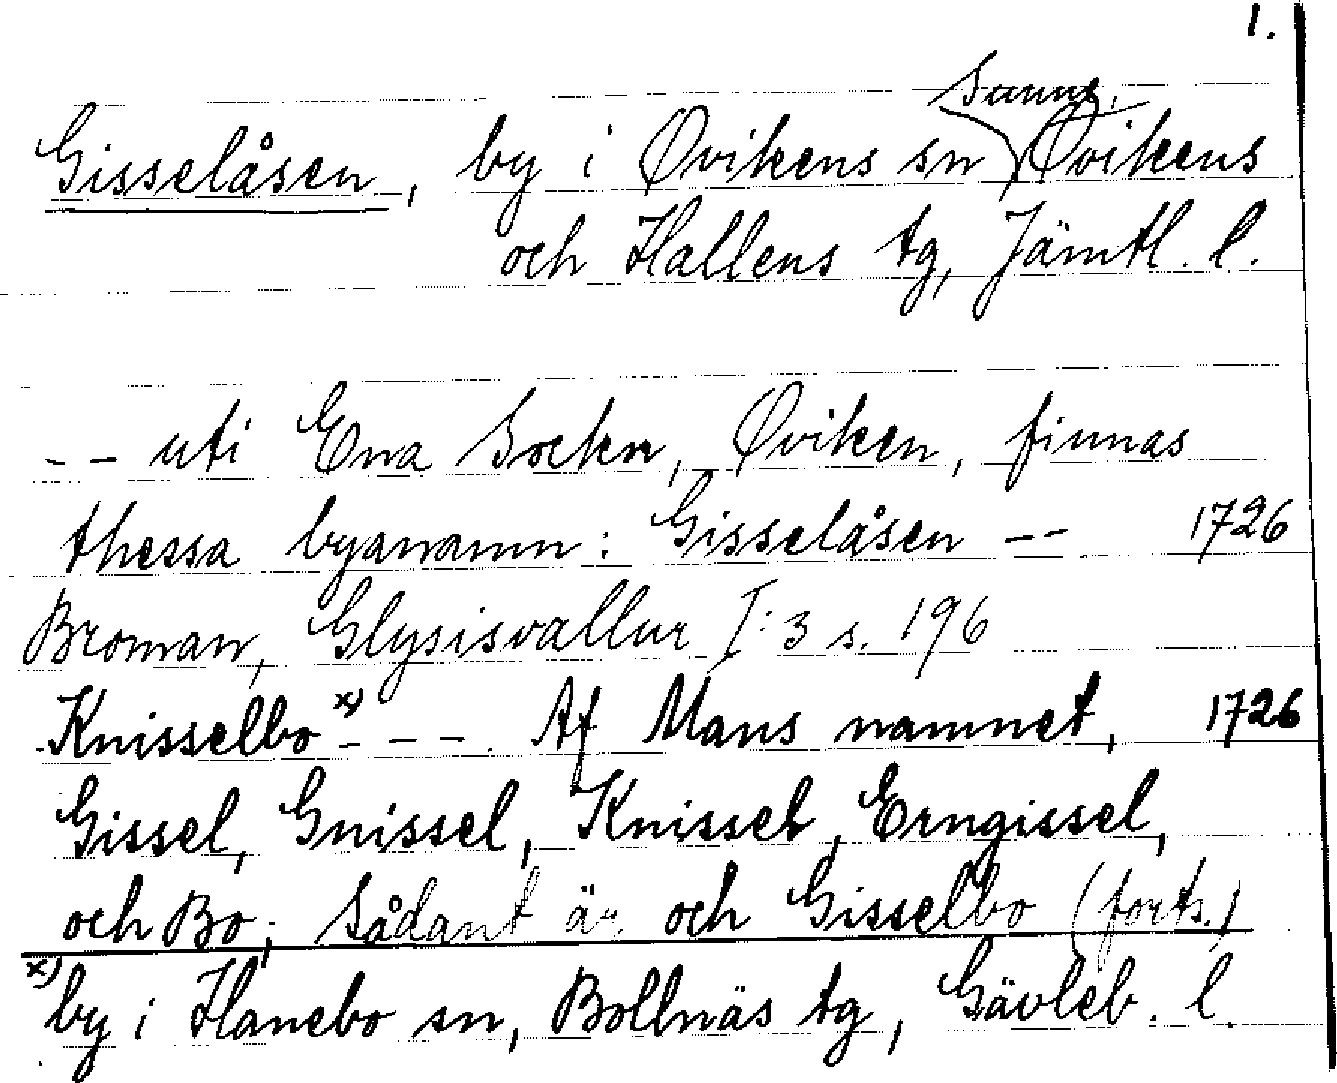 1.
Sunne,
Gisselåsen, by i Ovikens sn Ovikens
och Hallens tg, Jämtl. l.
-- uti Ena Sockn, Oviken, finnas
thessa byanamn: Gisselåsen -- 1726
Broman, Glysisvallur I:3 s. 196
Knisselbo x) --- Af Mans namnet, 1726
Gissel, Gnissel, Knissel, Erngissel,
och Bo; Sådant är och Gisselbo (forts.)
x) by i Hanebo sn, Bollnäs tg, Gävleb. l.